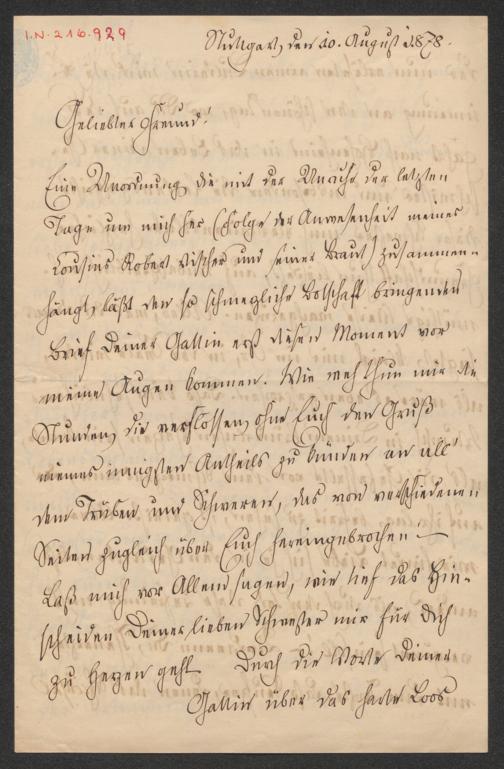 I.N. 216.929
Stuttgart, den 20. August 1878.
Geliebter Freund!
Eine Unordnung, die mit der Unruhe der letzten
Tage um mich her (Folge der Anwesenheit meines
Cousins Robert Vischer und seiner Braut) zusammen-
hängt, läßt den so schmerzliche Botschaft bringenden
Brief Deiner Gattin erst diesen Moment vor
meine Augen kommen. Wie weh thun mir die
Stunden, die verflossen, ohne Euch den Gruß
meines innigsten Antheils zu künden an all'
dem Trüben und Schweren, das von verschiedenen
Seiten zugleich über Euch hereingebrochen! –
Laß mich vor Allem sagen, wie tief das Hin-
scheiden Deiner lieben Schwester mir für Dich
zu Herzen geht. Durch die Worte Deiner
Gattin über das harte Loos